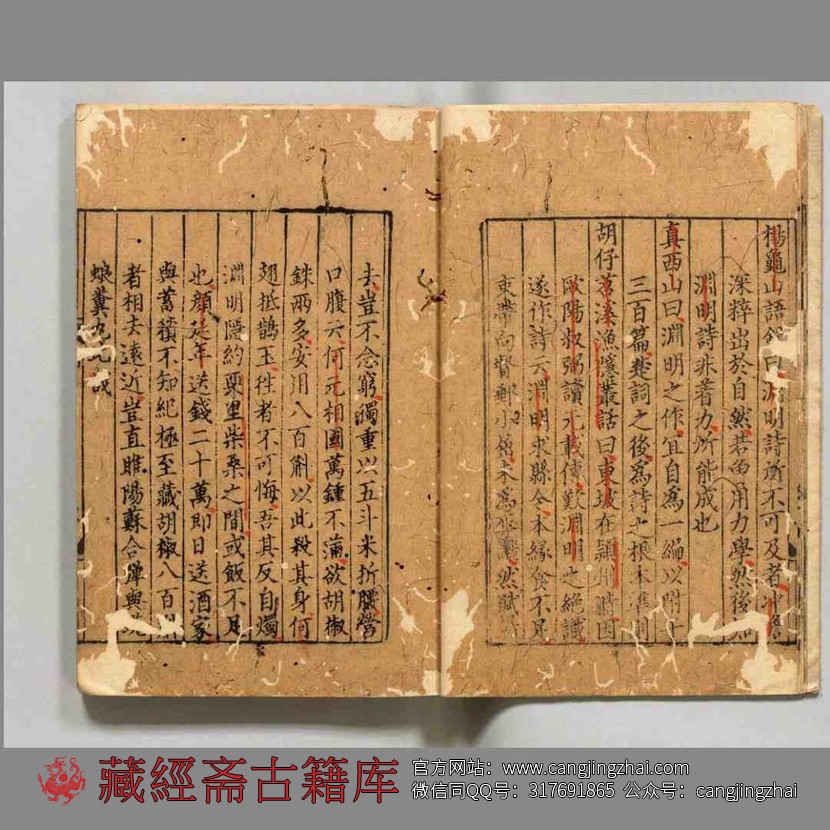 楊龜山語錄曰淵明詩所不可及者冲澹
深粹出於自然若曾用力學然後知
淵明詩非着力所能成也
真西山曰淵明之作宜自爲一編以附于
三百篇楚詞之後爲詩之根本凖則
胡仔苕溪漁隱叢話曰東坡在頴州時因
歐陽叔弼讀元載傳歎淵明之絶識
遂作詩云淵明求縣令本縁食不足
束帶向督郵小屈未爲辱翻然賦
去豈不念窮獨重以五斗米折腰營
口腹云何元相國萬鍾不滿欲胡椒
銖兩多安用八百斛以此殺其身何
翅抵鵲玉徃者不可悔吾其反自燭
淵明隱約栗里柴桑之間或飯不足
也顔延年送錢二十萬即日送酒家
與蓄積不知紀極至藏胡椒八百斛
者相去遠近豈直睢陽蘇合彈與
蜣糞丸比哉
藏經斋古籍库
官方网站：www.cangjingzhai.com
微信同QQ号：317691865 公众号：cangjingzhai